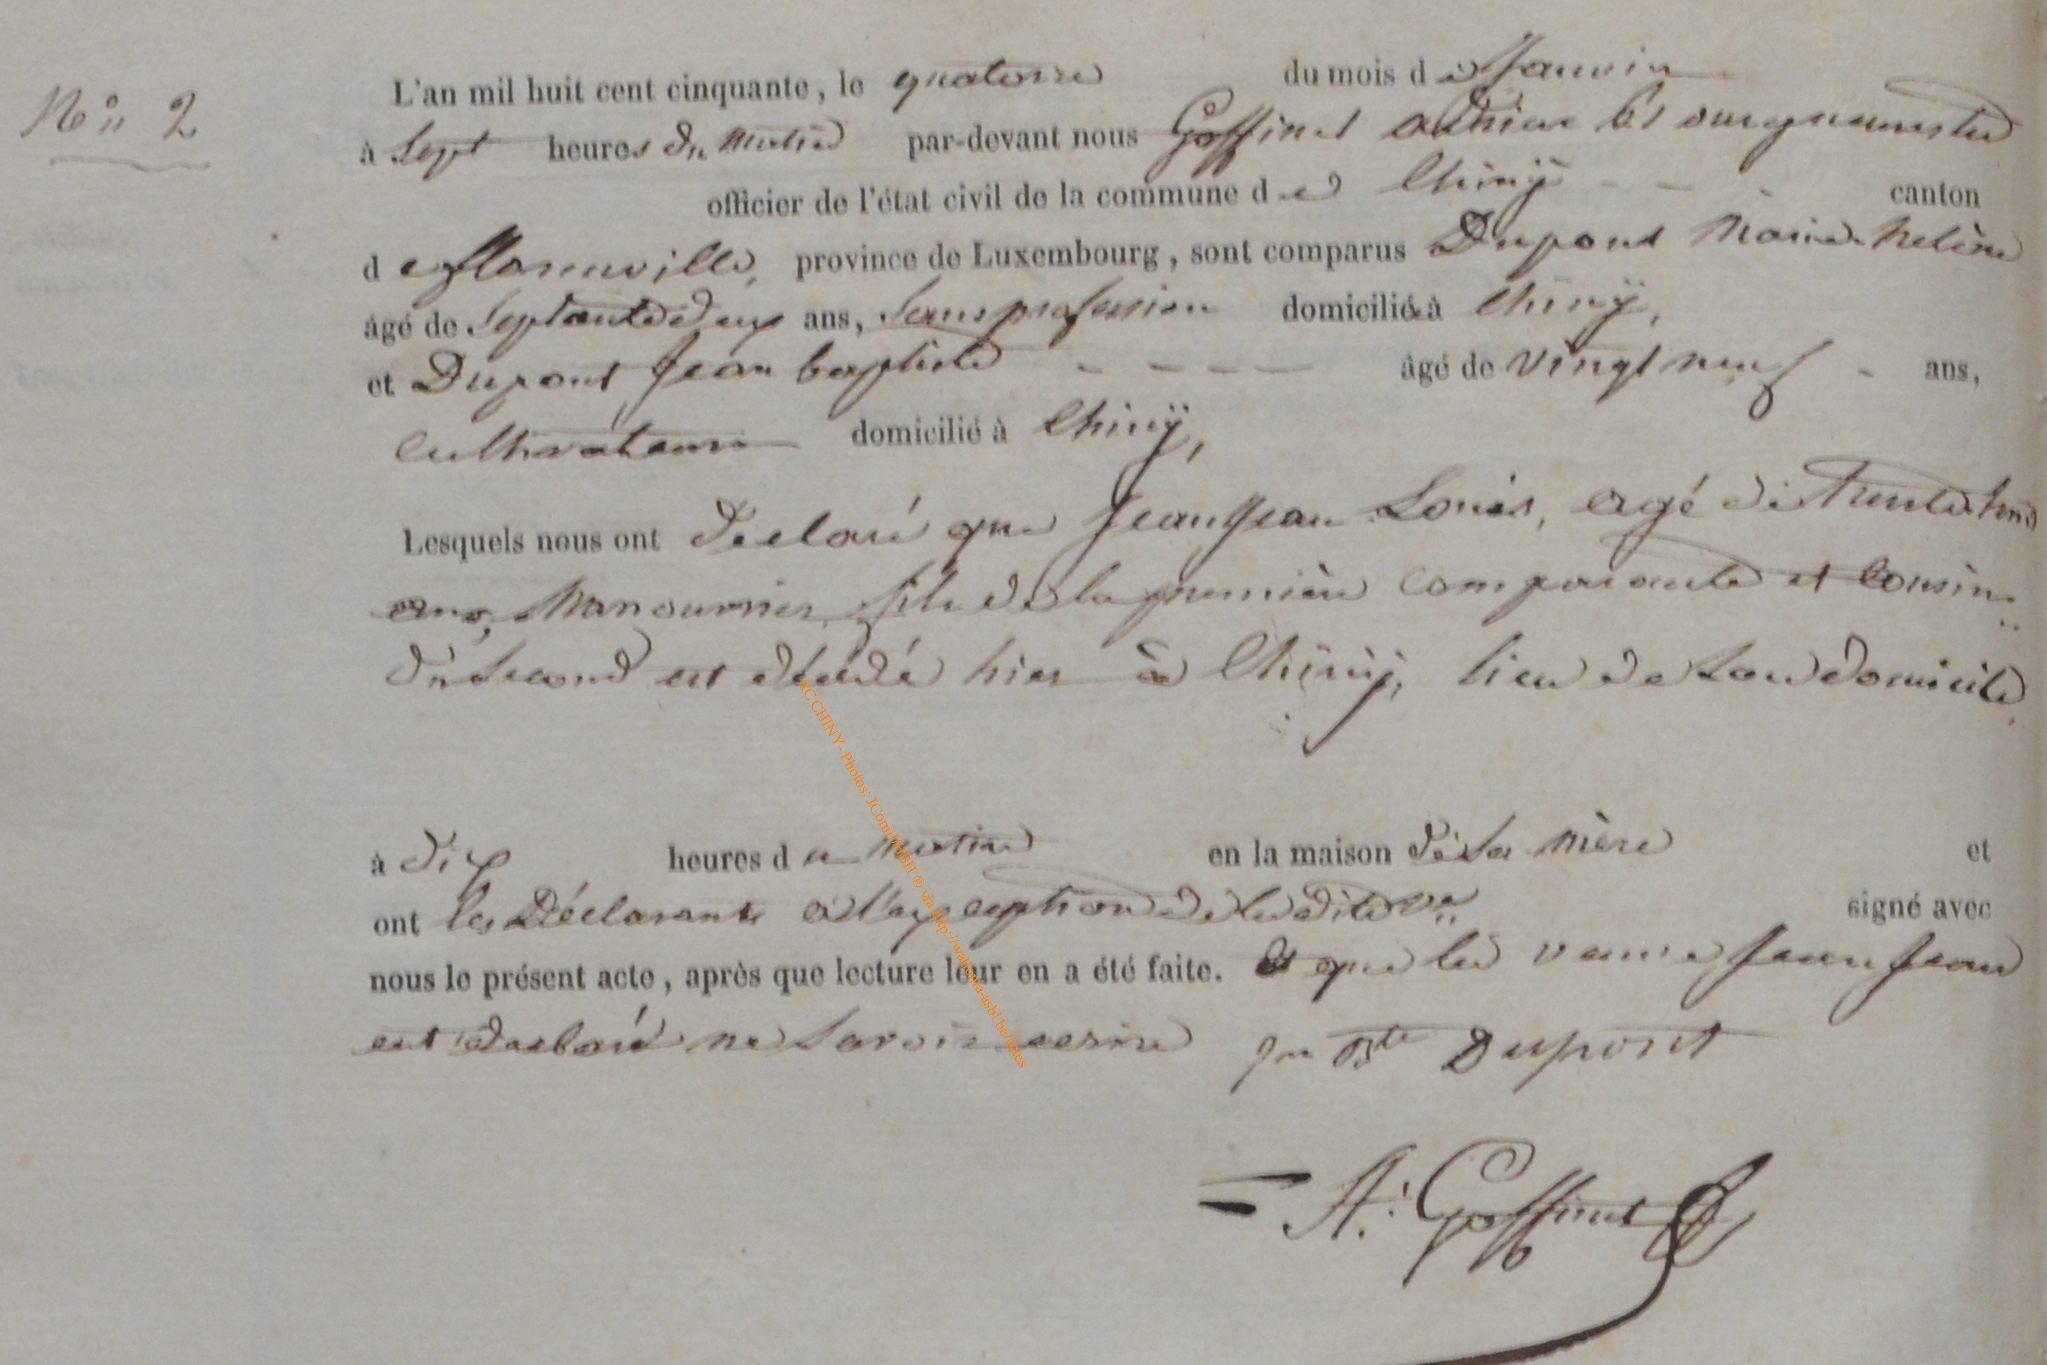 N° 2
L'an mil huit cent cinquante, le quatorze du mois de Janvier
à Sept heures du Matin par-devant nous Goffinet bourguemestre
officier de l'état civil de la commune de Chinÿ canton
de florenville, province de Luxembourg, sont comparus Dupont Marie helène
âgé de Septante deux ans, Sans profession domiciliée à Chinÿ,
et Dupont Jean baptiste - - - - — âgé de vingt neuf - ans,
Cultivateur domicilié à Chinÿ,
Lesquels nous ont déclaré que JeanJean Louis, agé de trente
ans, Manouvrier, fils de la première comparante et Cousin
du Second est décédé hier à Chinÿ, lieu de Son domicile,
à dix heures du Matin en la maison de Sa Mère et
ont les Déclarants à l'exception de la dite signé avec
nous le présent acte, après que lecture leur en a été faite. que la veuve Jean Jean
declaré ne Savoir ecrire Jn Bte Dupont
A. Goffinet
AC CHINY - Photos: JCom